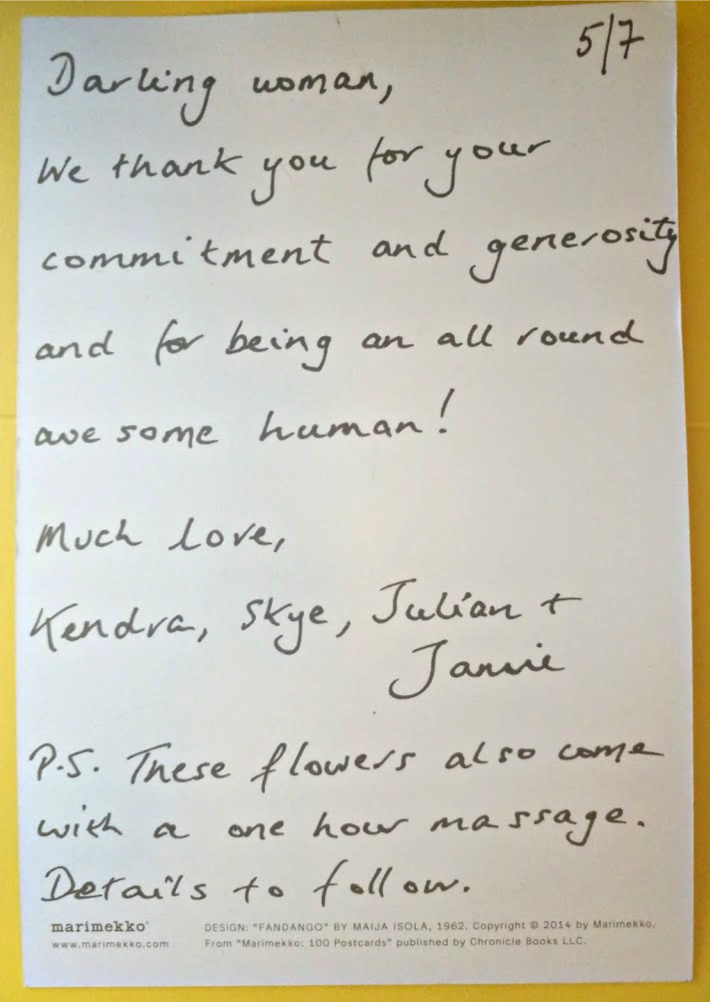 5/7
Darling woman,
We thank you for your
commitment and generosity
and for being an all round
awesome human!
Much love,
Kendra, Skye, Julian +
Jamie
P.S. These flowers also come
with a one hour massage.
Details to follow.
marimekko®
DESIGN: "FANDANGO" BY MAIJA ISOLA, 1962. Copyright © 2014 by Marimekko.
www.marimekko.com
From "Marimekko: 100 Postcards" published by Chronicle Books LLC.